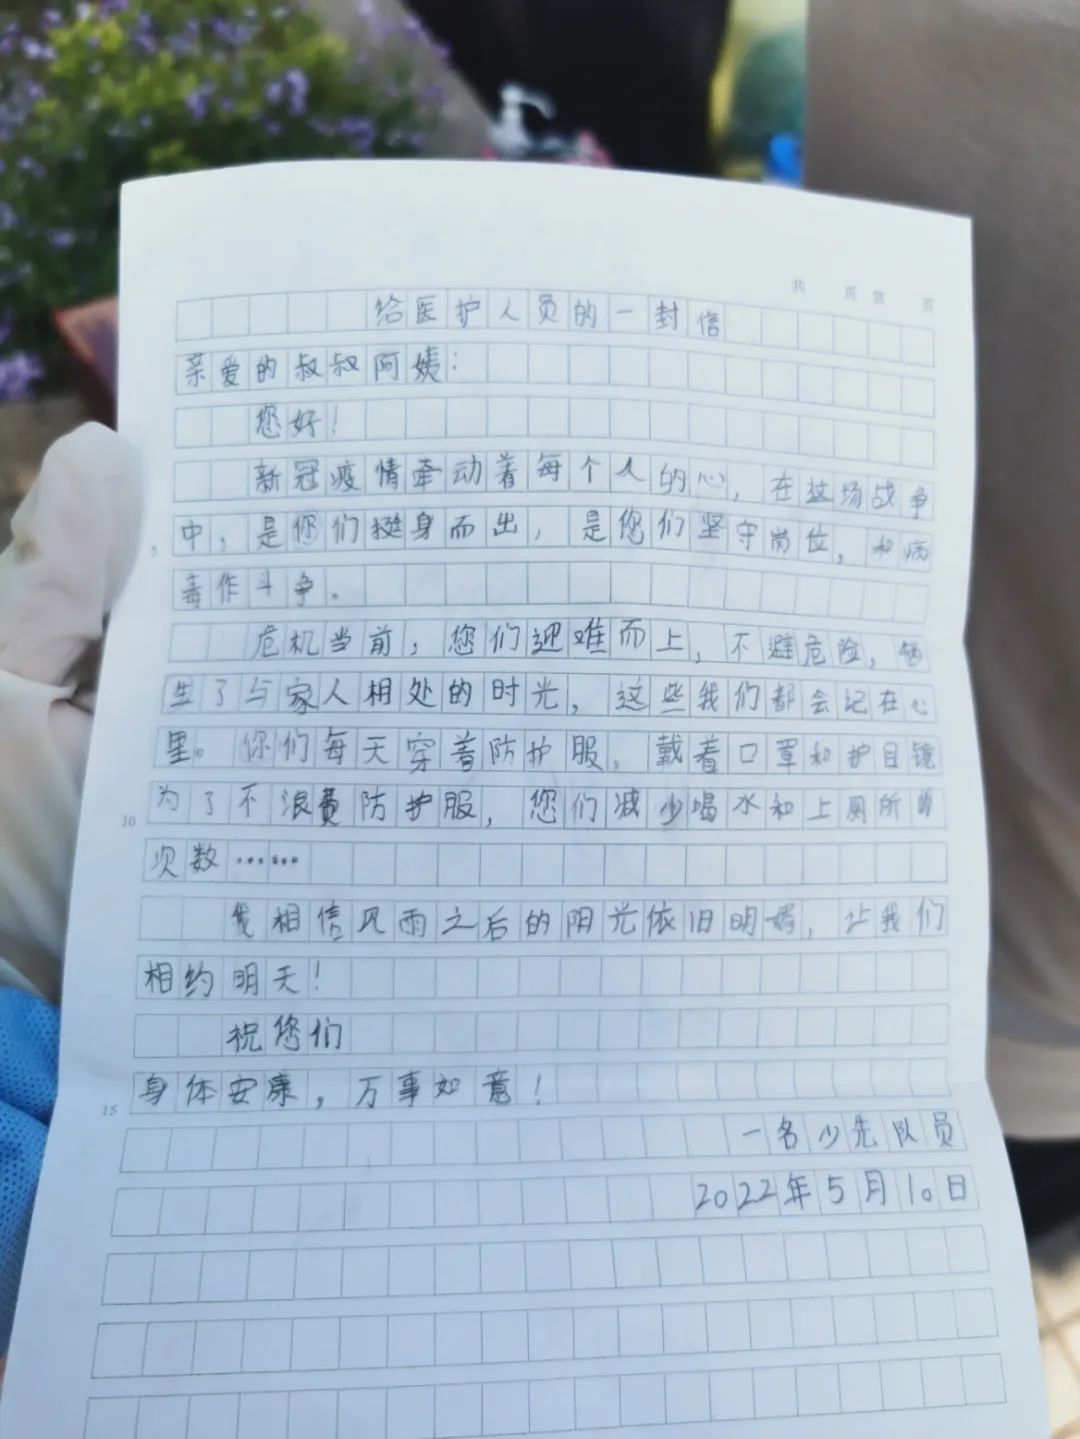 共 页 第 页
给医护人员的一封信
亲爱的叔叔阿姨:
您好!
新冠疫情牵动着每个人的心,在这场战争
5
中,是您们挺身而出,是您们坚守岗位,和病
毒作斗争。
危机当前,您们迎难而上,不避危险,牺
生了与家人相处的时光,这些我们都会记在心
里。你们每天穿着防护服,戴着口罩和护目镜
10
为了不浪费防护服,您们减少喝水和上厕所的
次数……
我相信风雨之后的阳光依旧明媚,让我们
相约明天!
祝您们
15
身体安康,万事如意!
一名少先队员
2022年5月10日